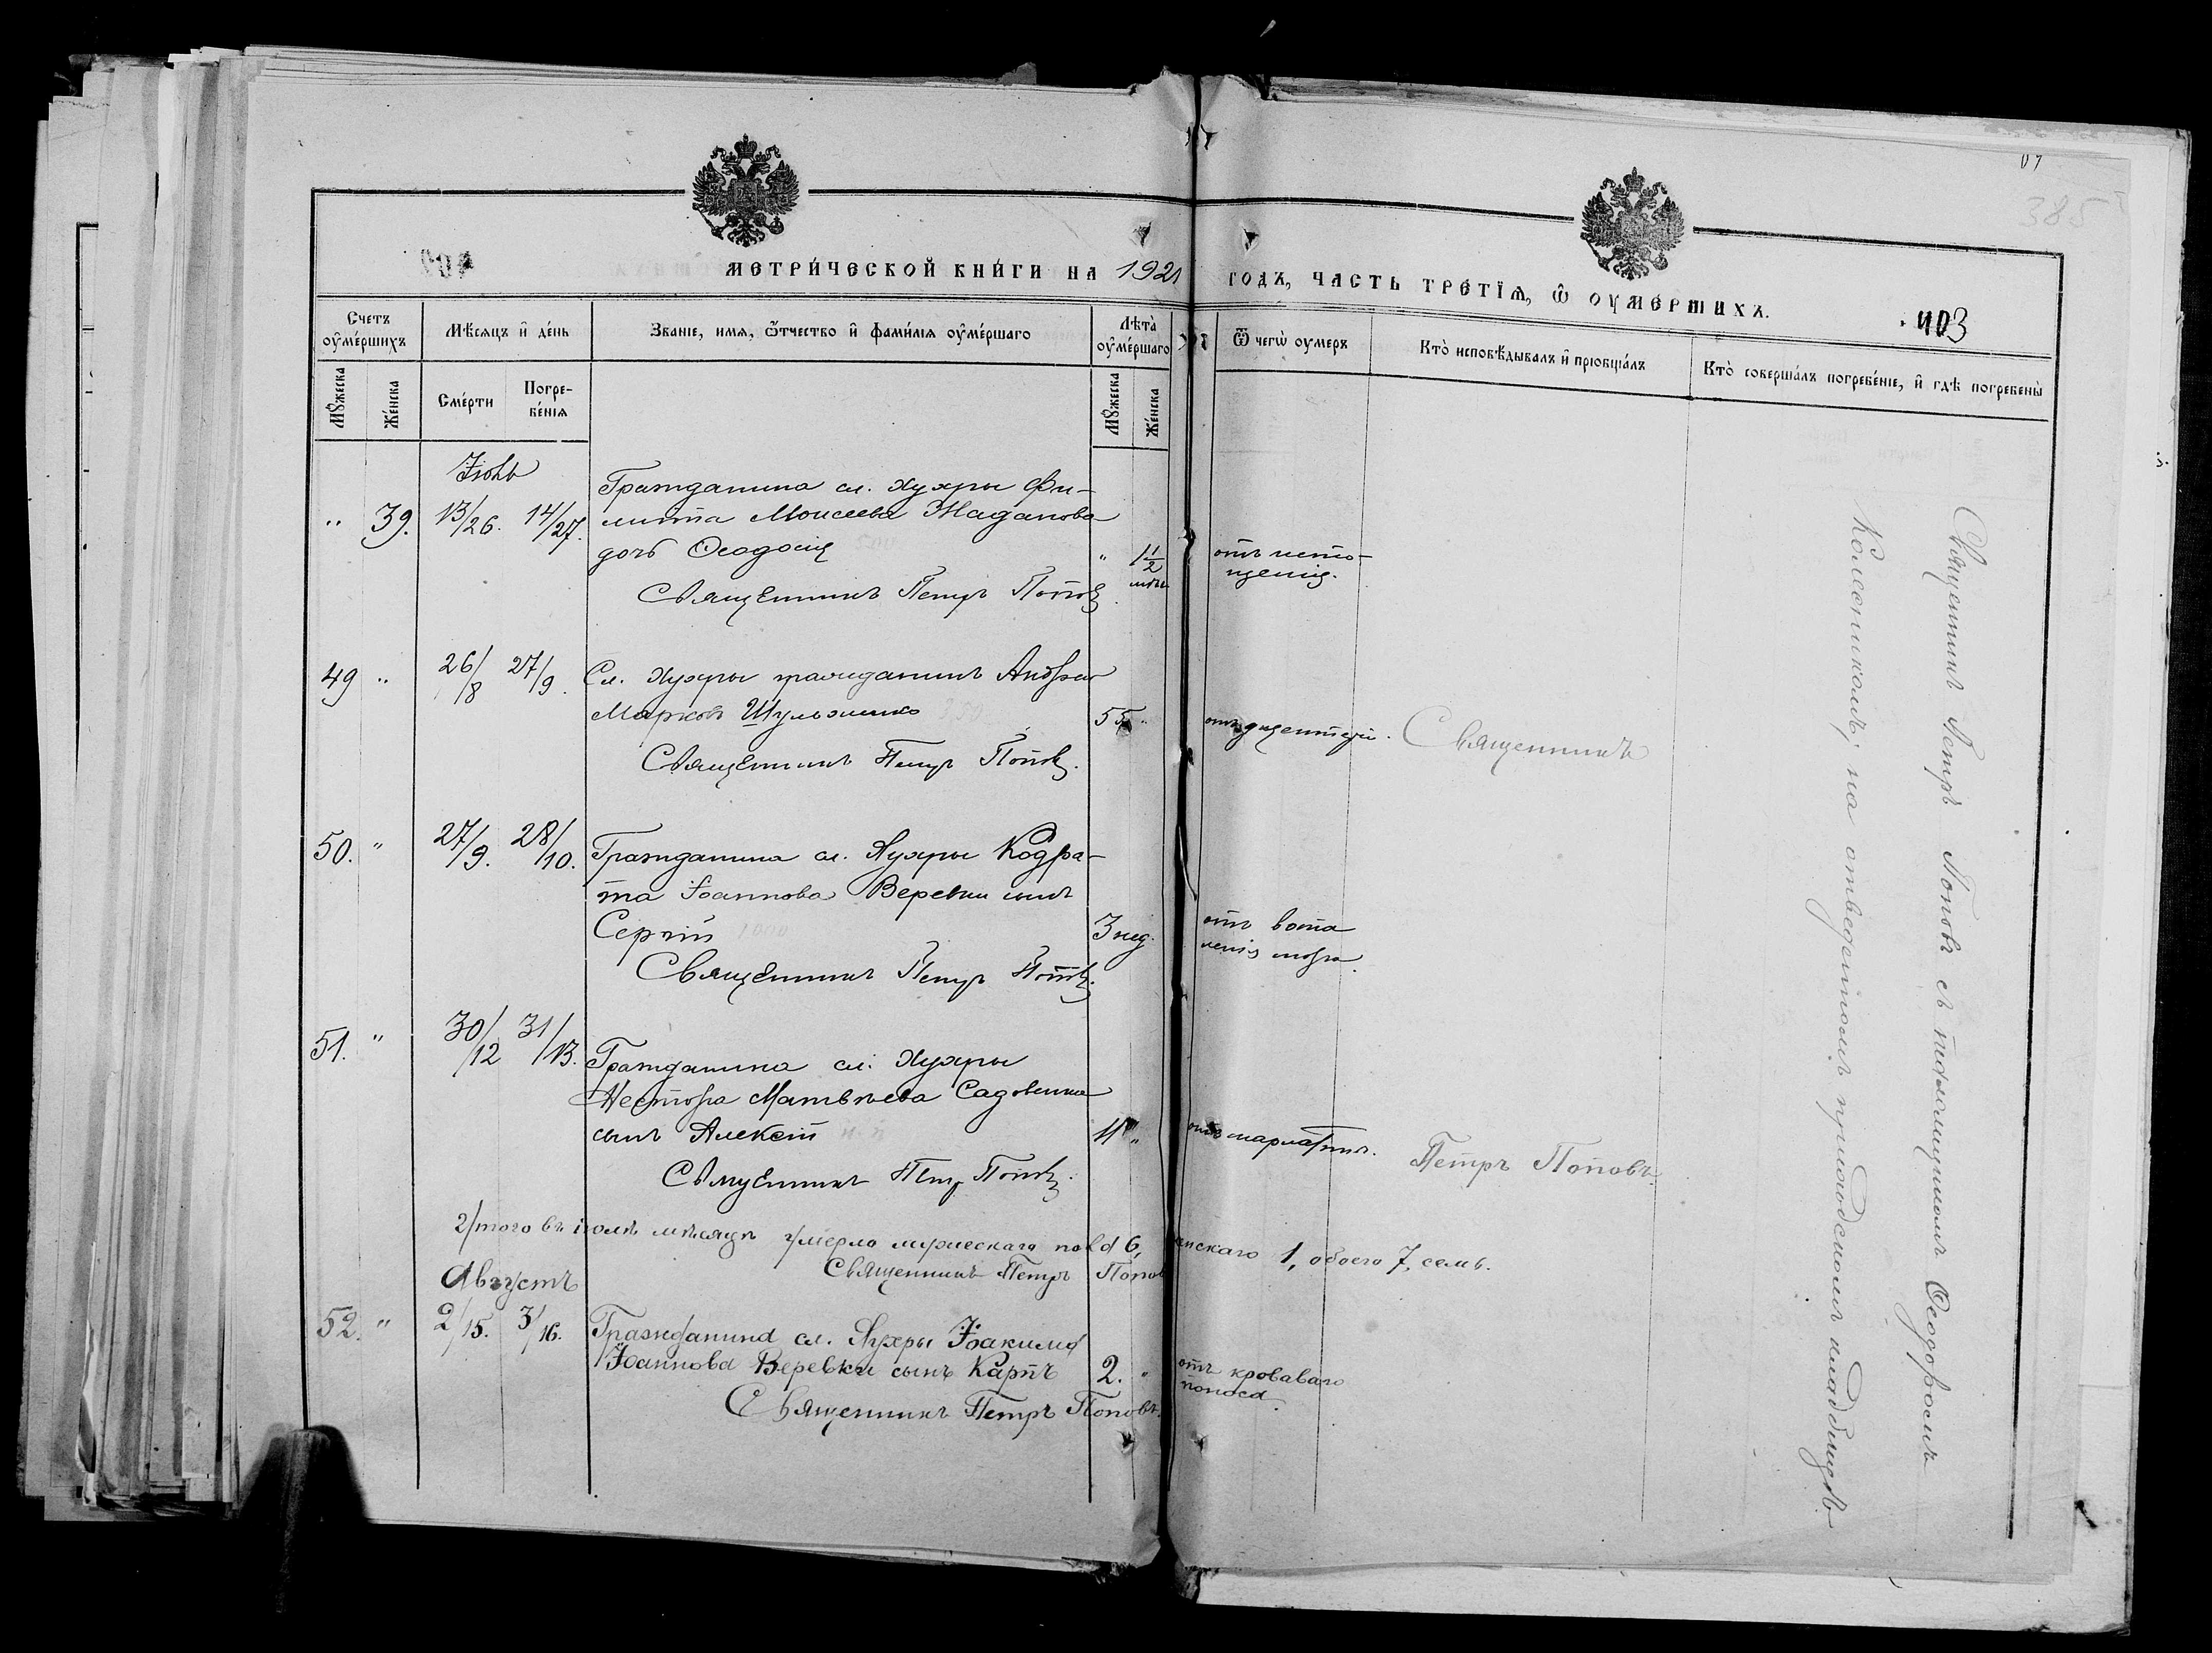 385
МЕТРИ́ЧЕСКОЙ КНИ́ГИ НА 1921 ГОДЪ, ЧАСТЬ ТРЕТІЯ, Ѡ ОУМЕРШИХЪ.
403
Счетъ оумершихъ
Мѣсяцъ и день
Званіе, имя, отчество и фамилія оумершаго
Лѣта оумершаго
Ѿ чегѡ оумеръ
Кто исповѣдывалъ и пріобщалъ
Кто совершалъ погребеніе, и гдѣ погребены
Мужеска
Женска
Смерти
Погребенія
Мужеска
Женска
Іюль
" 39. 13/26. 14/27.
Гражданина сл. Хухры Фи-
липпа Моисеева Жаданова
дочь Ѳеодосія " 1 1/2 отъ исто-
щенія.
Священникъ Петръ Поповъ.
49 " 26/8 27/9.
Сл. Хухры гражданинъ Андрей
Марковъ Шульженко 55 " отъ дизентеріи. Священникъ
Священникъ Петръ Поповъ.
50. " 27/9. 28/10.
Гражданина сл. Хухры Кодра-
та Іоаннова Веревки сынъ
Сергій 3 нед. отъ воспа
ленія
Священникъ Петръ Поповъ.
51. " 30/12 31/13.
Гражданина сл. Хухры
Нестора Матвѣева Садовника
сынъ Алексій 11 " отъ скарлатины. Петръ Поповъ.
Священникъ Петръ Поповъ.
Итого въ іюлѣ мѣсяцѣ умерло мужескаго пола 6, женскаго 1, обоего 7, семь.
Священникъ Петръ Поповъ
Августъ
52. " 2/15. 3/16.
Гражданина сл. Хухры Іоакима
Іоаннова Веревки сынъ Карпъ 2. " отъ кроваваго
поноса.
Священникъ Петръ Поповъ.
Священникъ Петръ Поповъ съ псаломщикомъ Ѳеодоромъ
Колесникомъ, на отведенномъ приходскомъ кладбищѣ.